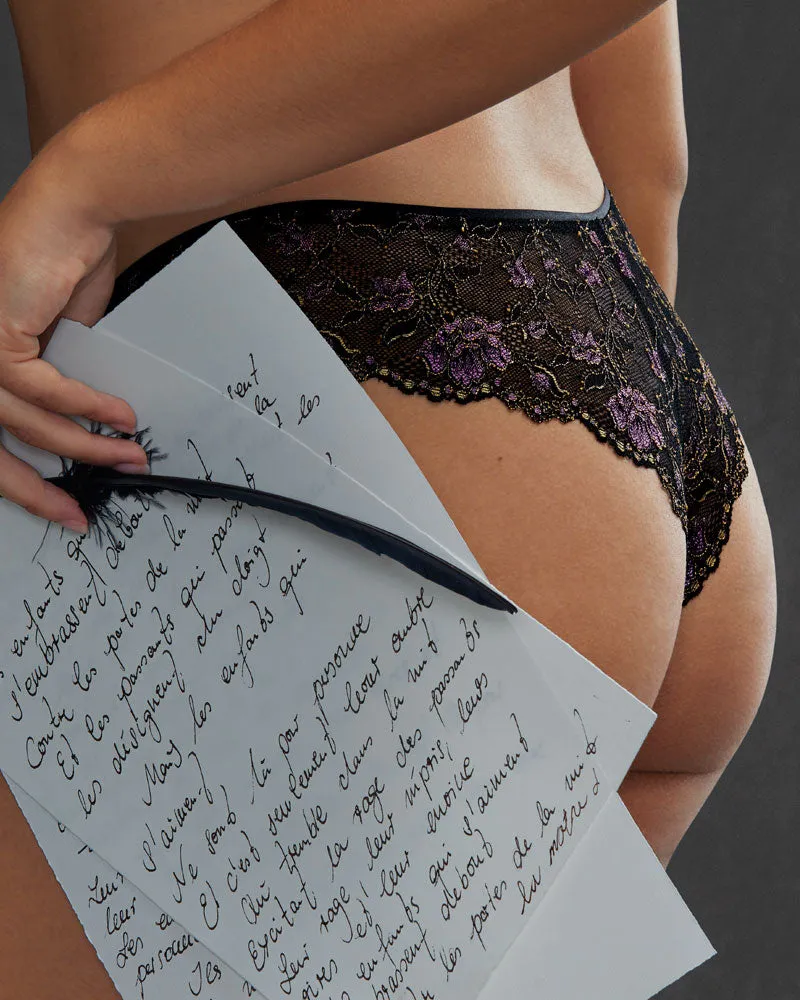 sent
la
les
enfants qu
s'embrassent debout
Contre les portes de la nuit
Et les passants qui passent
les désignent du doigt
Mais les enfants qui
s'aiment
Ne sont là pour personne
Et c'est seulement leur ombre
Qui tremble dans la nuit
Excitant la rage des passants
Leur rage leur mépris, leurs
rires et leur envie
enfants qui s'aiment
brassent debout
les portes de la nuit
Leur
leur
Les